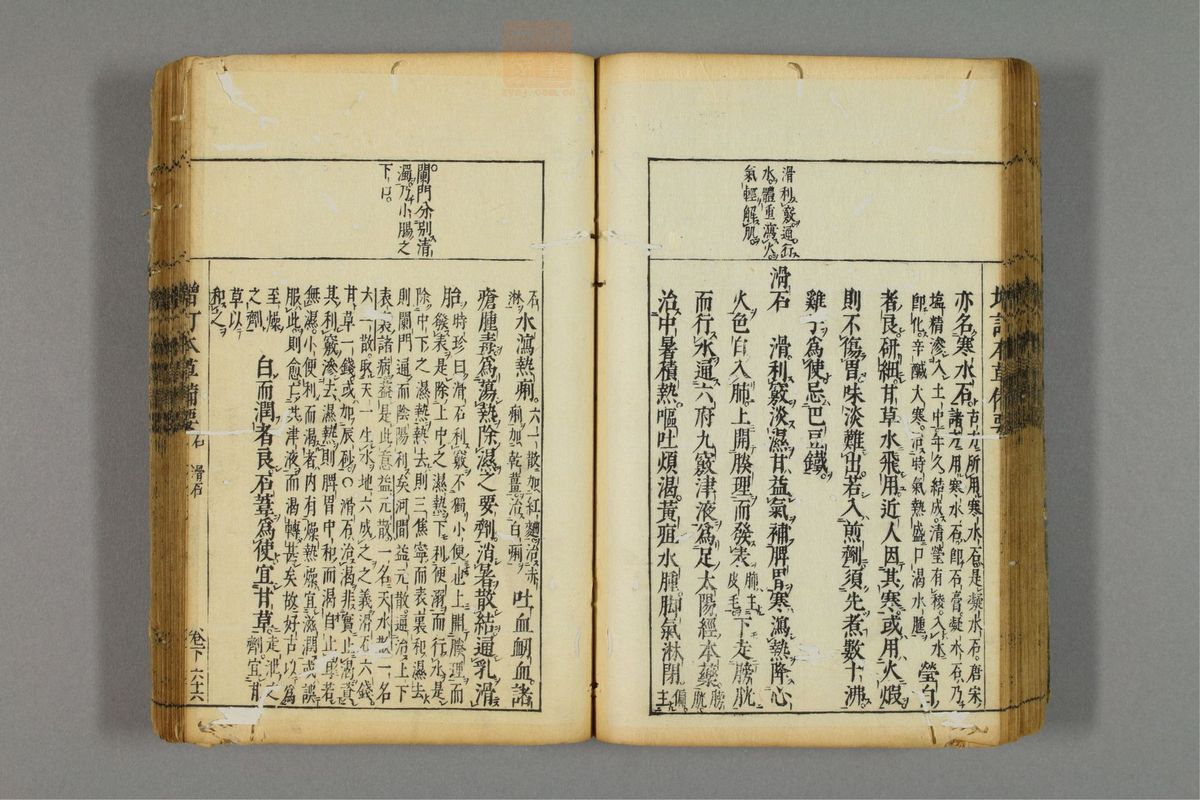 滑利竅通行
水體重瀉火
氣輕解肌
亦名寒水石古方所用寒水石是凝水石唐宋
諸方用寒水石即石膏凝水石乃
鹽精滲入土中年久結成清瑩有稜入水
即化辛鹹大寒治時氣熱盛口渴水腫瑩白
者良研細甘草水飛用近人因其寒或用火煅
則不傷胃味淡難出若入煎劑須先煮數十沸
雞子為使忌巴豆鐵
滑石 滑利竅淡滲濕甘益氣補脾胃寒瀉熱降心
火色白入肺上開腠理而發表肺主皮毛下走膀胱
而行水通六府九竅津液為足太陽經本藥膀胱
治中暑積熱嘔吐煩渴黃疸水腫脚氣淋閉偏主
石淋
闌門分別清
濁乃小腸之
下口
水瀉熱痢六一散加紅麴治赤痢加乾薑治白痢吐血衄血諸
瘡腫毒為蕩熱除濕之要劑消暑散結通乳滑
胎時珍曰滑石利竅不獨小便也上開腠理而
發表是除上中之濕熱下利便溺而行水是
除中下之濕熱熱去則三焦寧而表裏和濕去
則闌門通而陰陽利矣河間益元散通治上下
表裏諸病蓋是此意益元散一名天水散一名
六一散取天一生水地六成之之義滑石六錢
甘草一錢或加辰砂○滑石治渴非實止渴資
其利竅滲去濕熱則脾胃中和而渴自止耳若
無濕小便利而渴者內有燥熱燥宜滋潤或誤
服此則愈亡其津液而渴轉甚矣故好古以為
至燥
之劑白而潤者良石葦為使宜甘草走泄之劑宜甘
草以
和之
增訂本草備要 石 滑石
卷下 六十六